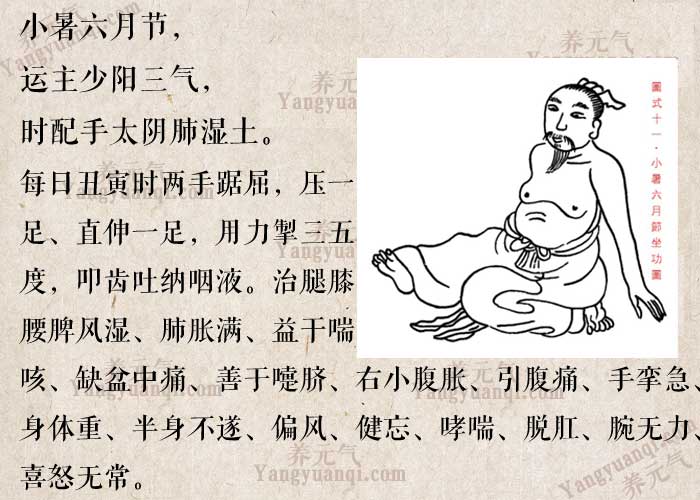 小暑六月节，
运主少阳三气，
时配手太阴肺湿土。
每日丑寅时两手踞屈，压一
足、直伸一足，用力掣三五
度，叩齿吐纳咽液。治腿膝
腰脾风湿、肺胀满、益干喘
咳、缺盆中痛、善于嚏脐、右小腹胀、引腹痛、手挛急、
身体重、半身不遂、偏风、健忘、哮喘、脱肛、腕无力、
喜怒无常。
圖式十一·小暑六月節坐功圖
养元气
Yangyuanqi.com
养元气
Yangyuanqi.com
养元气
Yangyuanqi.com
养元气
Yangyuanqi.com
养元气
Yangyuanqi.com
养元气
Yangyuanqi.com
养元气
Yangyuanqi.com